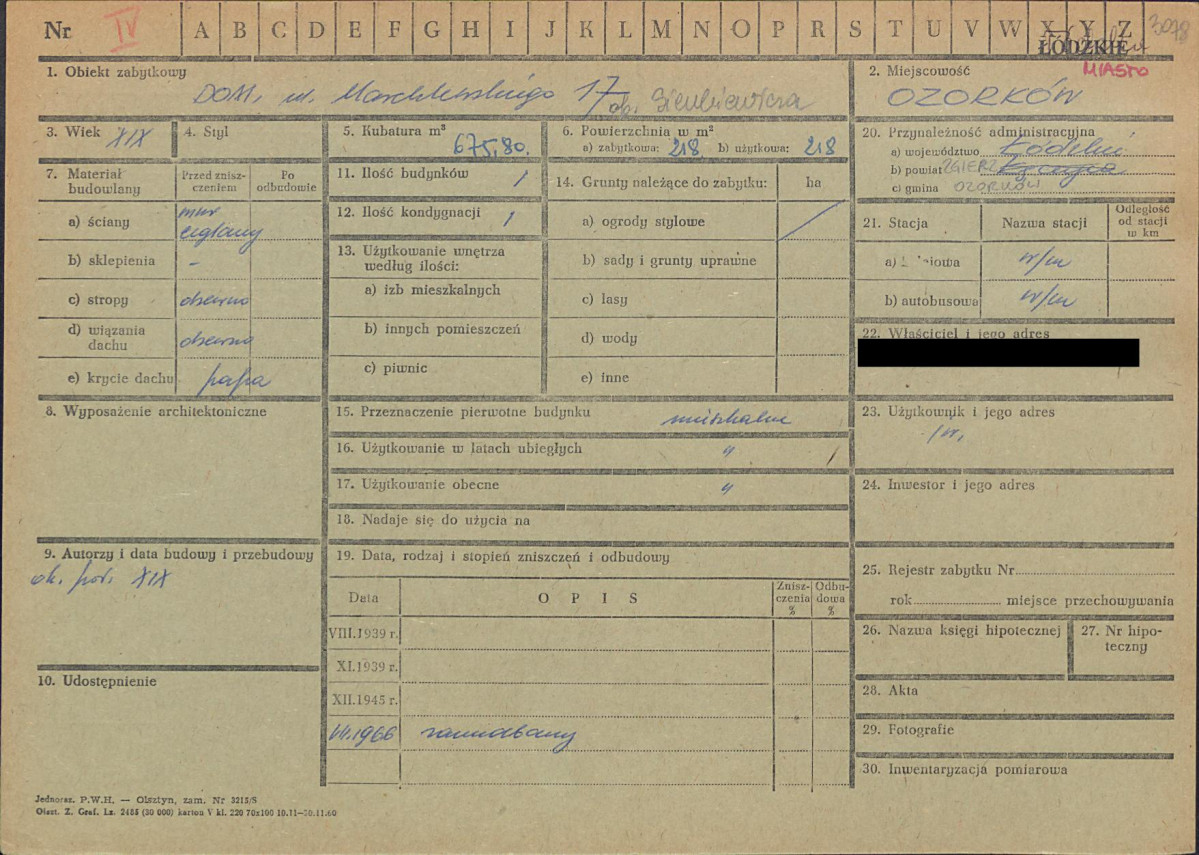 Nr IV A B C D E F G H I J K L M N O P R S T U V W X Y Z 3078
ŁÓDZKIE
MIASTO
1. Obiekt zabytkowy
DOM, ul. Marchlewskiego 17 ob. Sienkiewicza
2. Miejscowość
OZORKÓW
3. Wiek XIX
4. Styl
5. Kubatura m³
675,80.
6. Powierzchnia w m²
a) zabytkowa: 218 b) użytkowa: 218
7. Materiał budowlany
Przed zniszczeniem
Po odbudowie
a) ściany mur ceglany
b) sklepienia -
c) stropy drewno
d) wiązania dachu drewno
e) krycie dachu papa
8. Wyposażenie architektoniczne
9. Autorzy i data budowy i przebudowy
ok. poł. XIX
10. Udostępnienie
11. Ilość budynków 1
12. Ilość kondygnacji 1
13. Użytkowanie wnętrza według ilości:
a) izb mieszkalnych
b) innych pomieszczeń
c) piwnic
14. Grunty należące do zabytku: ha
a) ogrody stylowe
b) sady i grunty uprawne
c) lasy
d) wody
e) inne
15. Przeznaczenie pierwotne budynku mieszkalne
16. Użytkowanie w latach ubiegłych "
17. Użytkowanie obecne "
18. Nadaje się do użycia na
19. Data, rodzaj i stopień zniszczeń i odbudowy
Data
O P I S
Zniszczenia %
Odbudowa %
VIII.1939 r.
XI.1939 r.
XII.1945 r.
VII.1966 zaniedbany
20. Przynależność administracyjna
a) województwo Łódzkie
b) powiat ZGIERZ Łęczyca
c) gmina OZORKÓW
21. Stacja
Nazwa stacji
Odległość od stacji w km
a) w/m
b) autobusowa w/m
22. Właściciel i jego adres
23. Użytkownik i jego adres
24. Inwestor i jego adres
25. Rejestr zabytku Nr
rok miejsce przechowywania
26. Nazwa księgi hipotecznej
27. Nr hipoteczny
28. Akta
29. Fotografie
30. Inwentaryzacja pomiarowa
Jednoraz. P.W.H. — Olsztyn, zam. Nr 3215/S
Olszt. Z. Graf. Lz. 2485 (30 000) karton V kl. 220 70x100 10.11—30.11.60